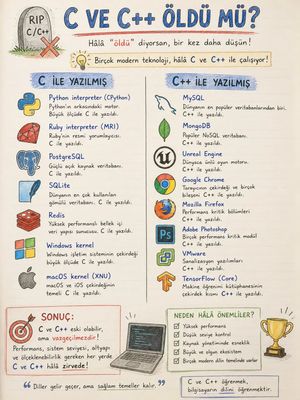 RIP
C/C++
C VE C++ ÖLDÜ MÜ?
Hâlâ "öldü" diyorsan, bir kez daha düşün!
Birçok modern teknoloji, hâlâ C ve C++ ile çalışıyor!
C İLE YAZILMIŞ
Python interpreter (CPython)
Python'un arkasındaki motor.
Büyük ölçüde C ile yazıldı.
Ruby interpreter (MRI)
Ruby'nin resmi yorumlayıcısı.
C ile yazıldı.
PostgreSQL
Güçlü açık kaynak veritabanı.
C ile yazıldı.
SQLite
Dünyanın en çok kullanılan
gömülü veritabanı. C ile yazıldı.
Redis
Yüksek performanslı bellek içi
veri yapısı sunucusu. C ile yazıldı.
Windows kernel
Windows işletim sisteminin çekirdeği
büyük ölçüde C ile yazıldı.
macOS kernel (XNU)
macOS ve iOS çekirdeğinin
temeli C ile yazıldı.
C++ İLE YAZILMIŞ
MySQL
Dünyanın en popüler veritabanlarından biri.
C++ ile yazıldı.
MongoDB
Popüler NoSQL veritabanı.
C++ ile yazıldı.
Unreal Engine
Dünyaca ünlü oyun motoru.
C++ ile yazıldı.
Google Chrome
Tarayıcının çekirdeği ve birçok
bileşeni C++ ile yazıldı.
Mozilla Firefox
Performans kritik bölümleri
C++ ile yazıldı.
Adobe Photoshop
Birçok performans kritik modül
C++ ile yazıldı.
VMware
Sanallaştırma yazılımları
C++ ile yazıldı.
TensorFlow (Core)
Makine öğrenimi kütüphanesinin
çekirdek kısmı C++ ile yazıldı.
SONUÇ:
C ve C++ eski olabilir,
ama vazgeçilmezdir!
Performans, sistem seviyesi, altyapı
ve ölçeklenebilirlik gereken her yerde
C ve C++ hâlâ zirvede!
NEDEN HÂLÂ ÖNEMLİLER?
Yüksek performans
Düşük seviye kontrol
Kaynak yönetiminde esneklik
Büyük ve olgun ekosistem
Birçok modern dilin temelinde varlar
“ Diller gelir geçer, ama sağlam temeller kalır. ”
C ve C++ öğrenmek,
bilgisayarın dilini öğrenmektir.